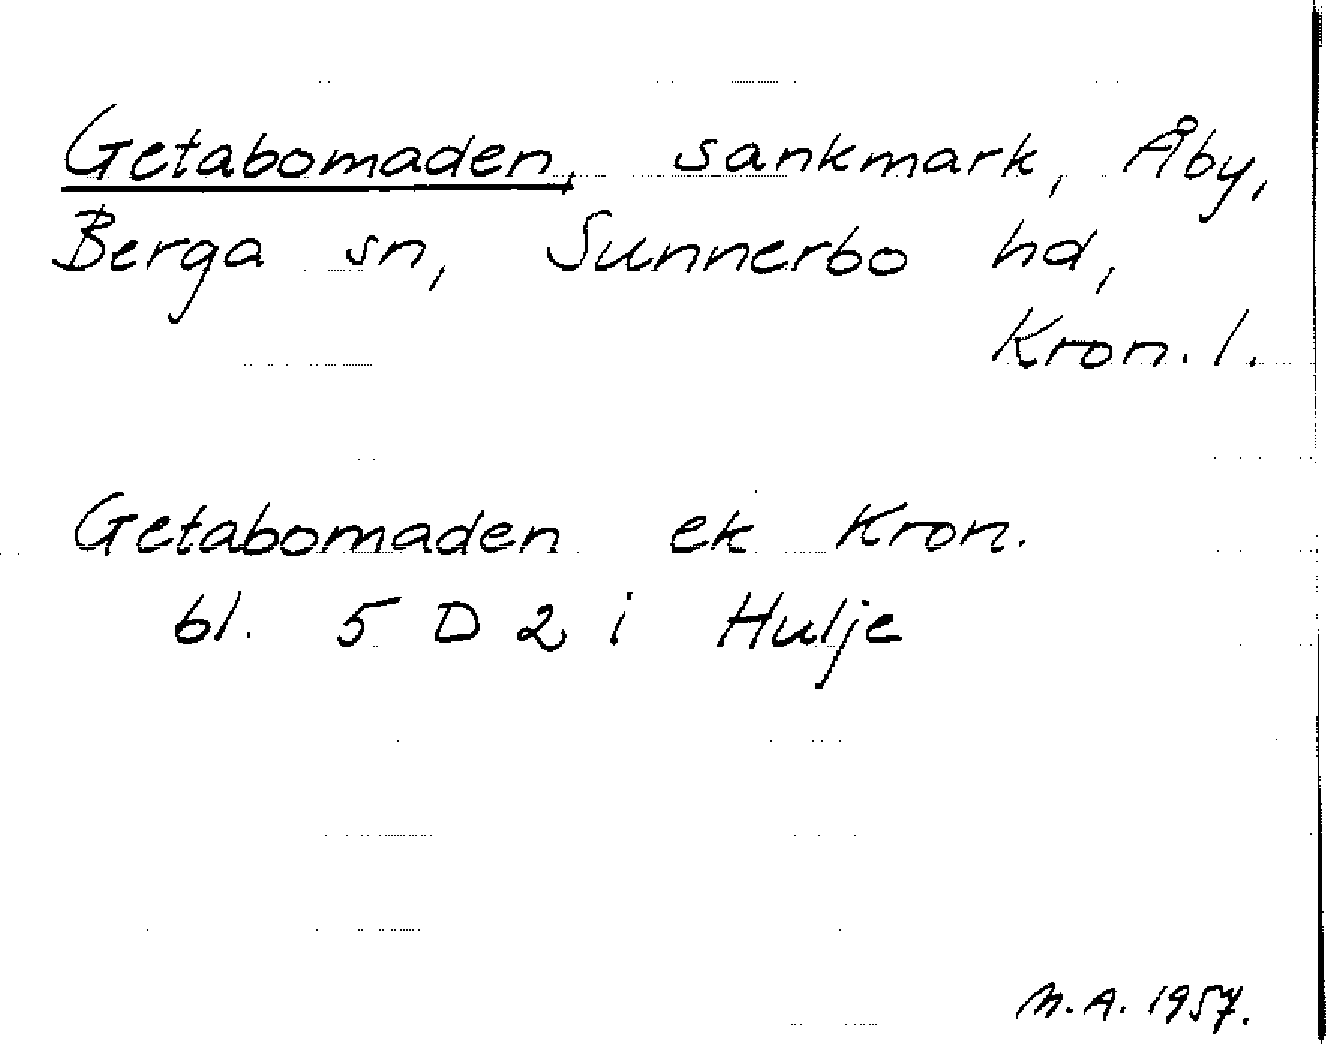 Getabomaden, sankmark, Åby,
Berga sn, Sunnerbo hd,
Kron. l.
Getabomaden ek Kron.
bl. 5 D 2 i Hulje
M.A. 1957.